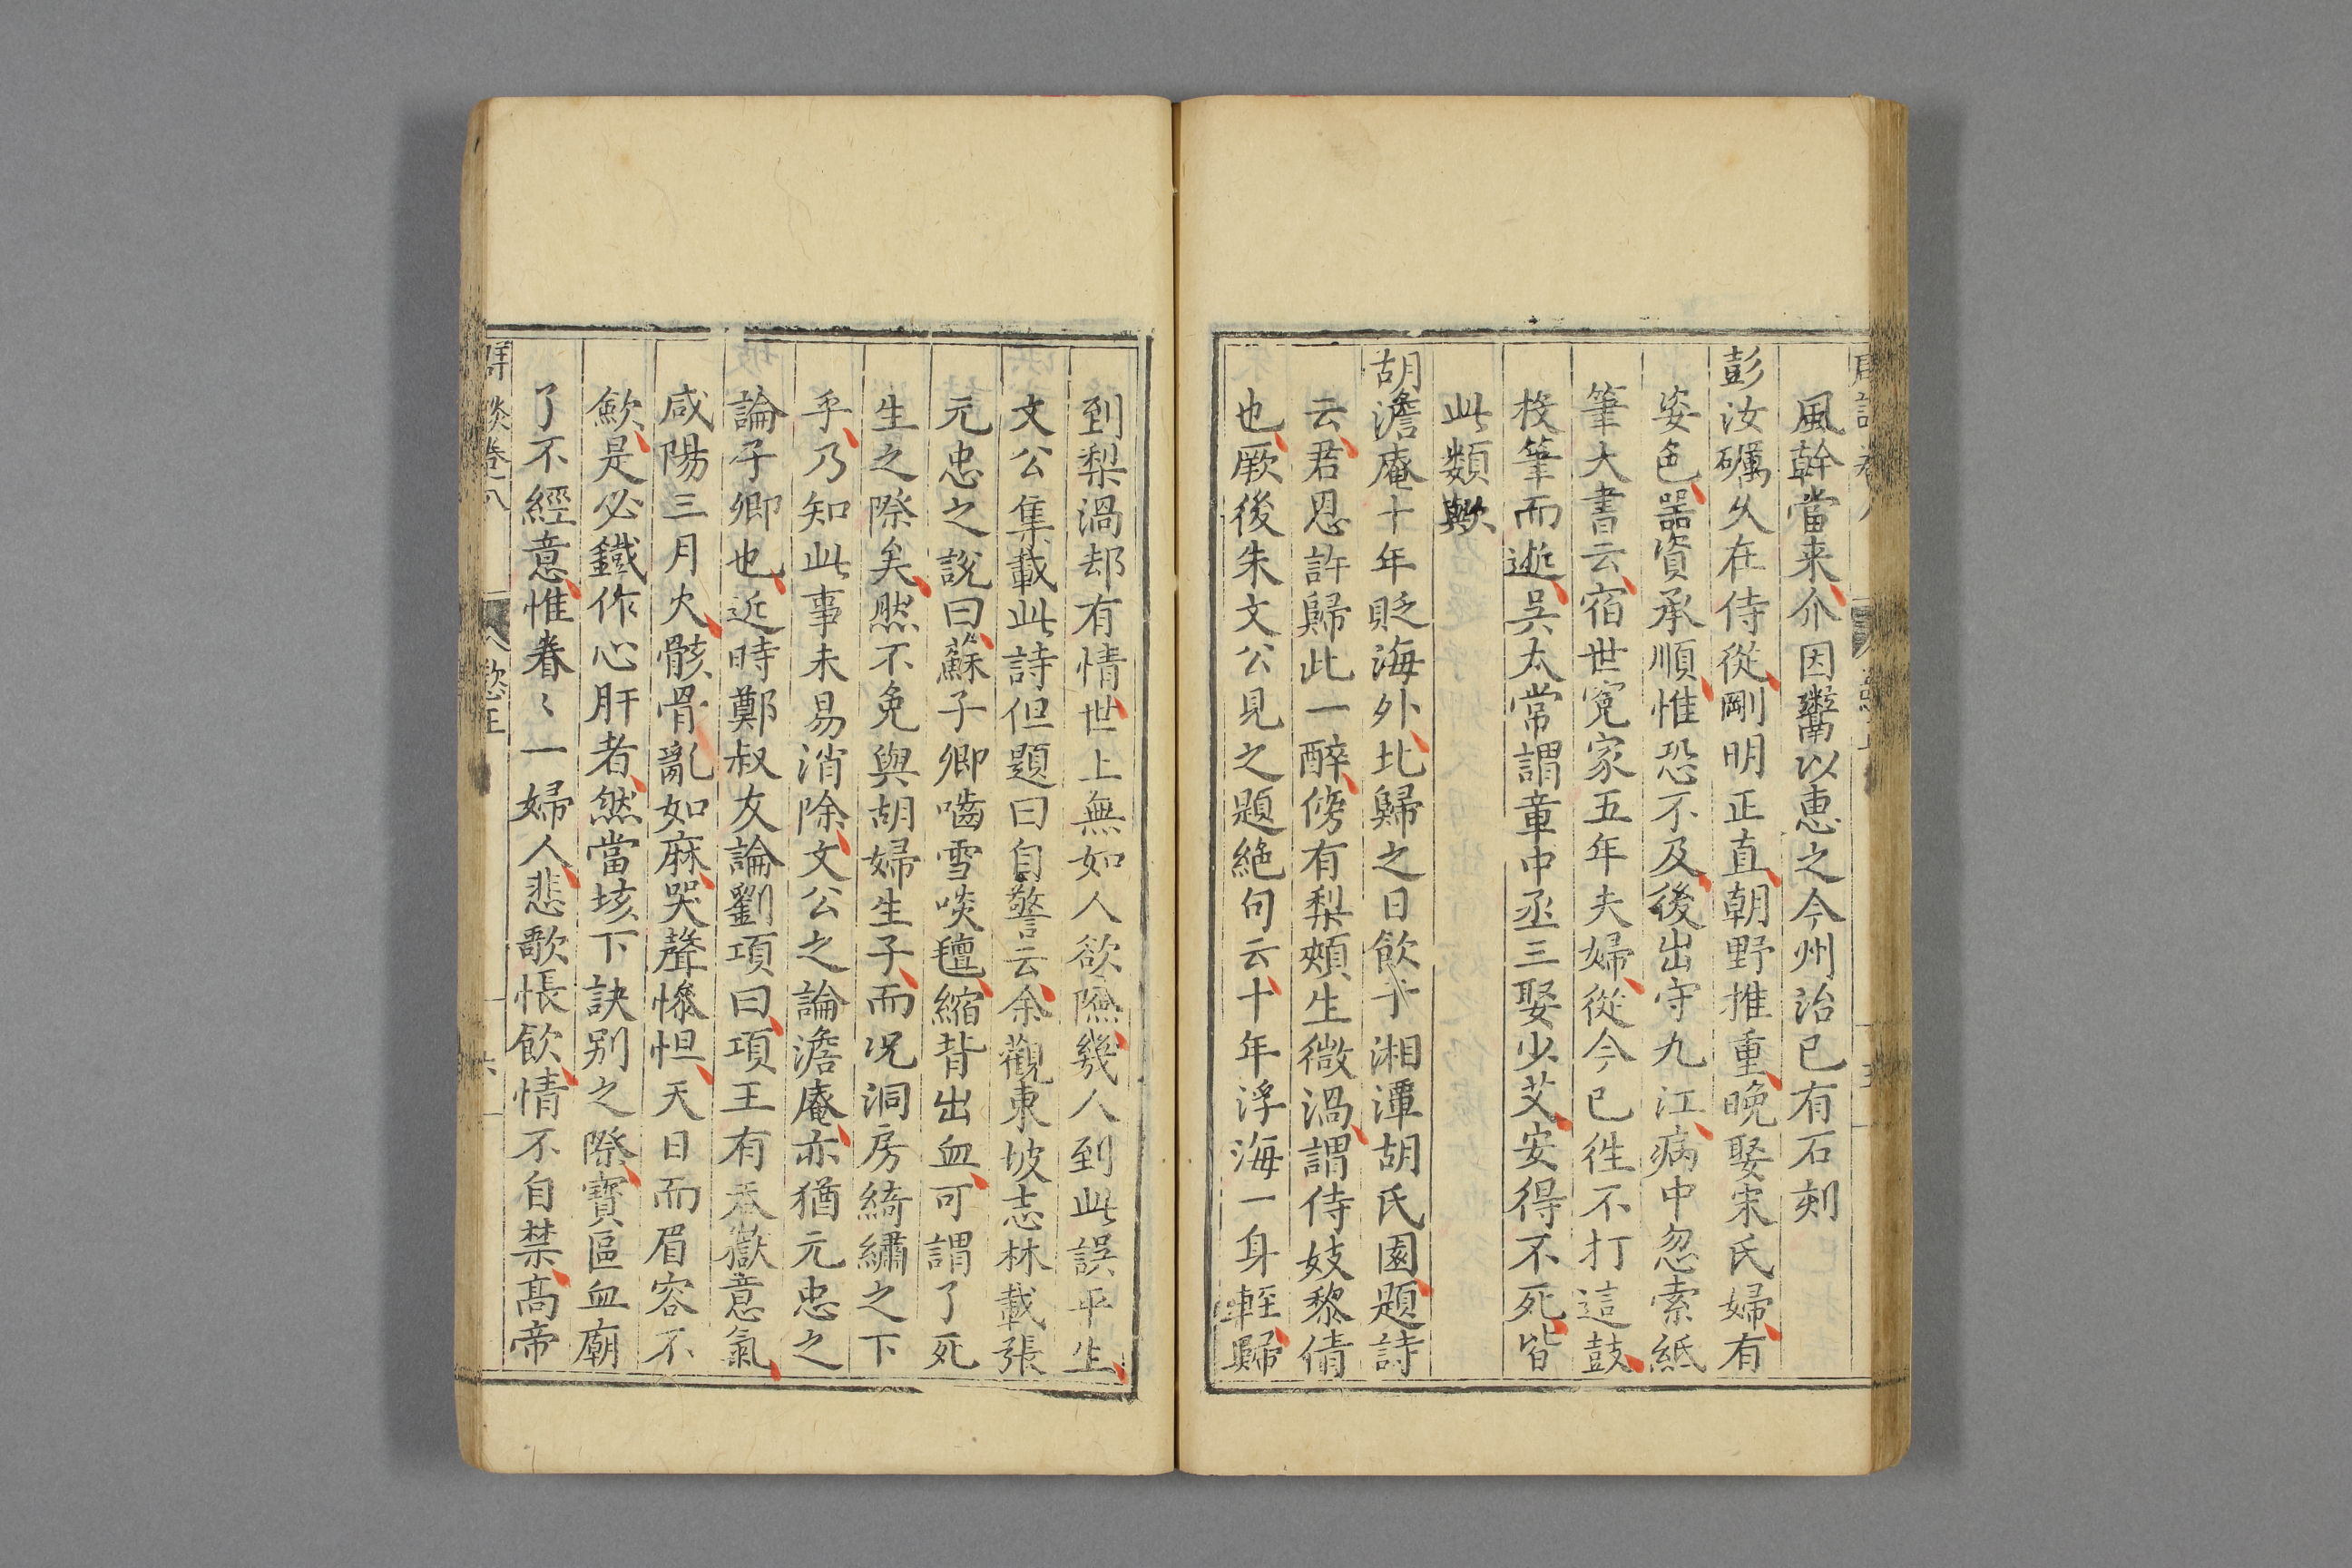 風幹當来介因鬻以惠之今州治已有石刻
彭汝礪久在侍從剛明正直朝野推重晚娶宋氏婦有
姿色器資承順惟恐不及後出守九江病中忽索紙
筆大書云宿世冤家五年夫婦從今已徃不打這鼓
投筆而逝吳太常謂童中丞三娶少艾安得不死皆
此類歟
胡澹庵十年貶海外北歸之日飲于湘潭胡氏園題詩
云君恩許歸此一醉傍有梨頰生微渦謂侍妓黎倩
也厥後朱文公見之題絶句云十年浮海一身輕歸
到梨渦却有情世上無如人欲險幾人到此誤平生
文公集載此詩但題曰自警云余觀東坡志林載張
元忠之說曰蘇子卿嚙雪啖氊縮背出血可謂了死
生之際矣然不免與胡婦生子而况洞房綺繡之下
乎乃知此事未易消除文公之論澹庵亦猶元忠之
論子卿也近時鄭叔友論劉項曰項王有吞嶽意氣
咸陽三月火骸骨亂如麻哭聲慘怛天日而眉容不
歛是必鐵作心肝者然當垓下訣别之際寳區血廟
了不經意惟眷〻一婦人悲歌悵飲情不自禁髙帝
卷八
六